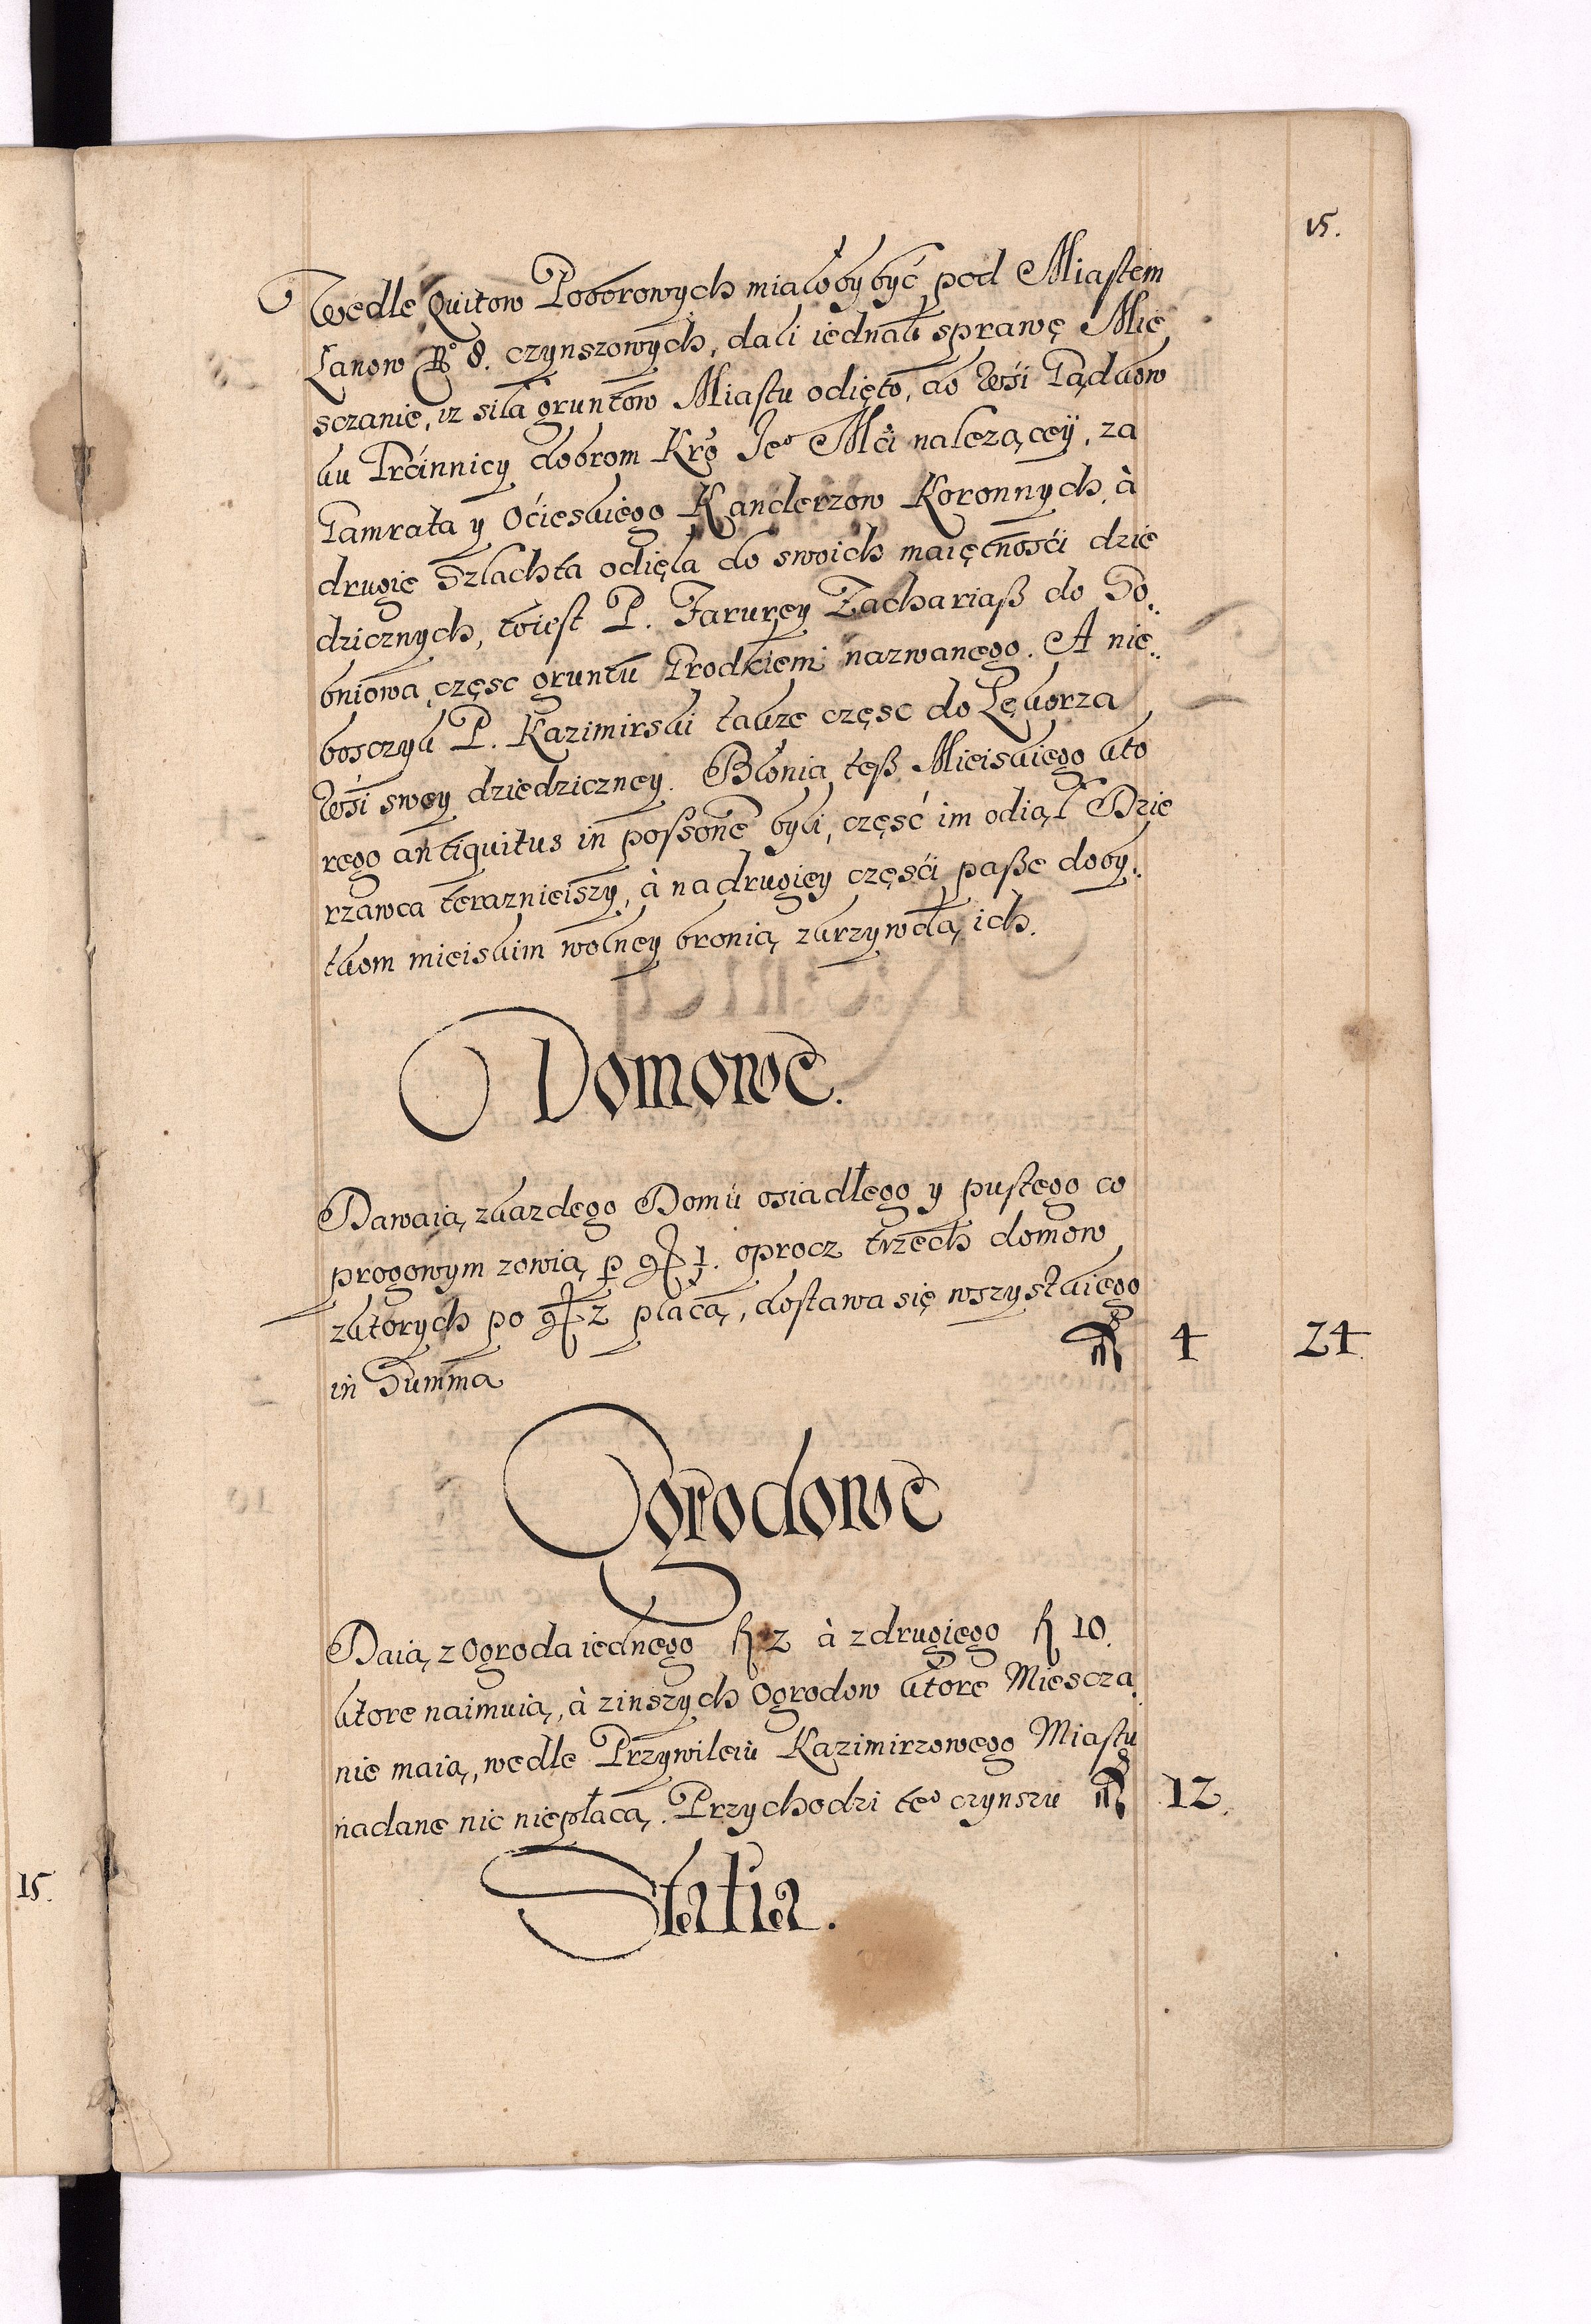 15.
Wedle Quitow Poborowych miałoby być pod Miastem
Łanow No 8. czynszowych, dali iednak sprawę Mie
sczanie, iz siła gruntow Miastu odięto, do Wśi Gądkow
ku Prannicy dobrom Kro Jeo Mći nalezącey, za
Gamrata y Oćieskiego Kanclerzow Koronnych, à
drugie Szlachta odięła do swoich maiętnośći dzie
dzicznych, toiest P. Jarurey Zachariaß do So..
bniowa, częsc gruntu Grodkiem nazwanego. A nie..
bosczyk P. Kazimirski takze częsc do Lękorza
Wśi swey dziedziczney. Błonia teß Mieiskiego kto
rego antiquitus in possone byli, część im odiął Dzie
rzawca teraznieiszy, à na drugiey częśći paße doby..
tkom mieiskim wolney bronią zkrzywdą ich.
Domowe.
Dawaią zkazdego Domu osiadłego y pustego co
progowym zowią p gr 1. oprocz trzech domow
zktorych po gr 2 płacą, dostawa się wszystkiego
in Summa 4 24
Ogrodowe
Daią z Ogroda iednego 2 à z drugiego 10.
ktore naimuią, à zinszych Ogrodow ktore Miescza
nie maią, wedle Przywileiu Kazimirzowego Miastu
nadane nic niepłacą. Przychodzi teo czynszu 12.
Statia.
15.